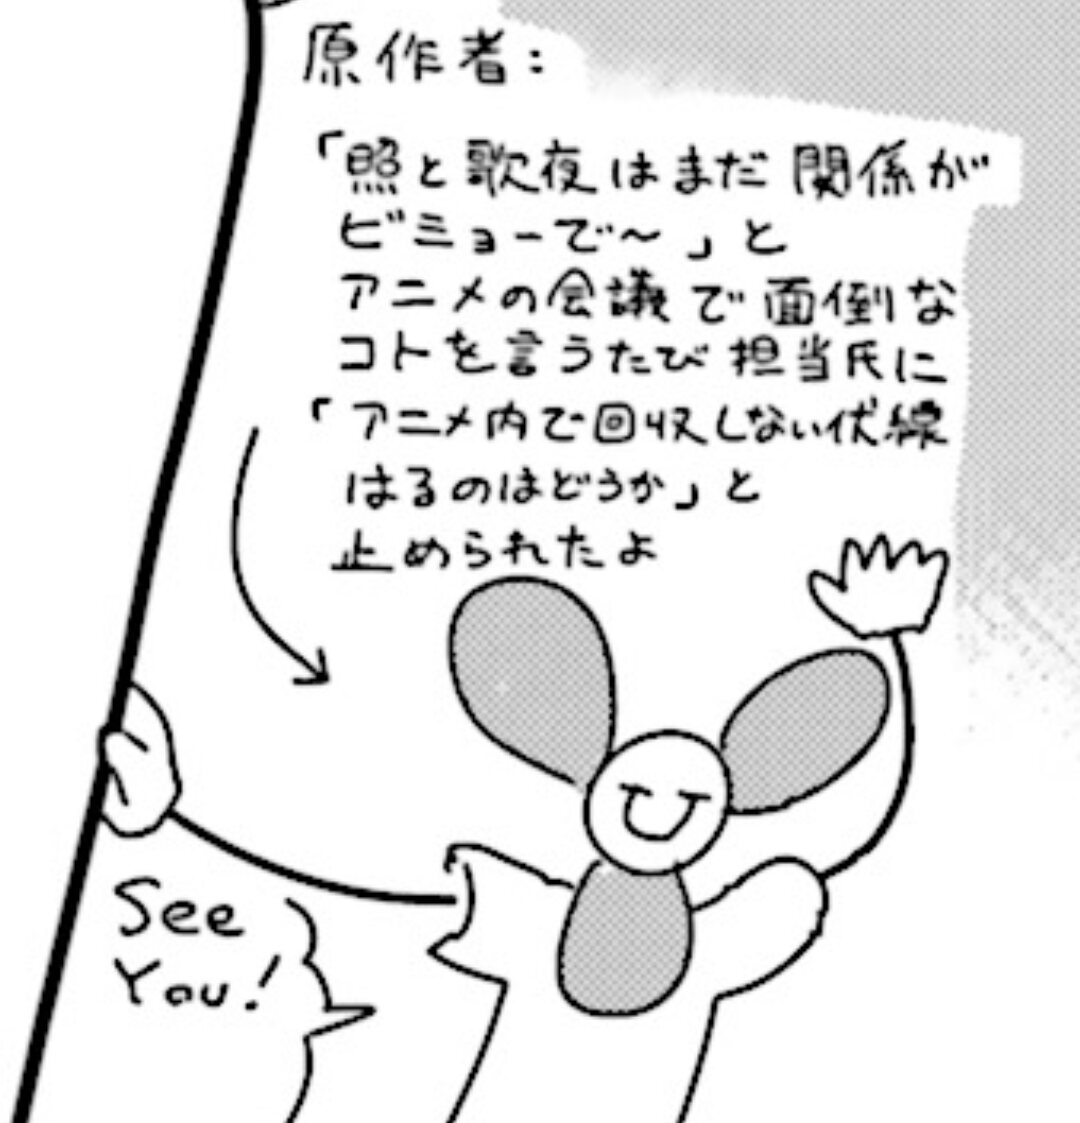 原作者:
「照と歌夜はまだ関係が
ビミョーで〜」と
アニメの会議で面倒な
コトを言うたび担当氏に
「アニメ内で回収しない伏線
はるのはどうか」と
止められたよ
See
You!